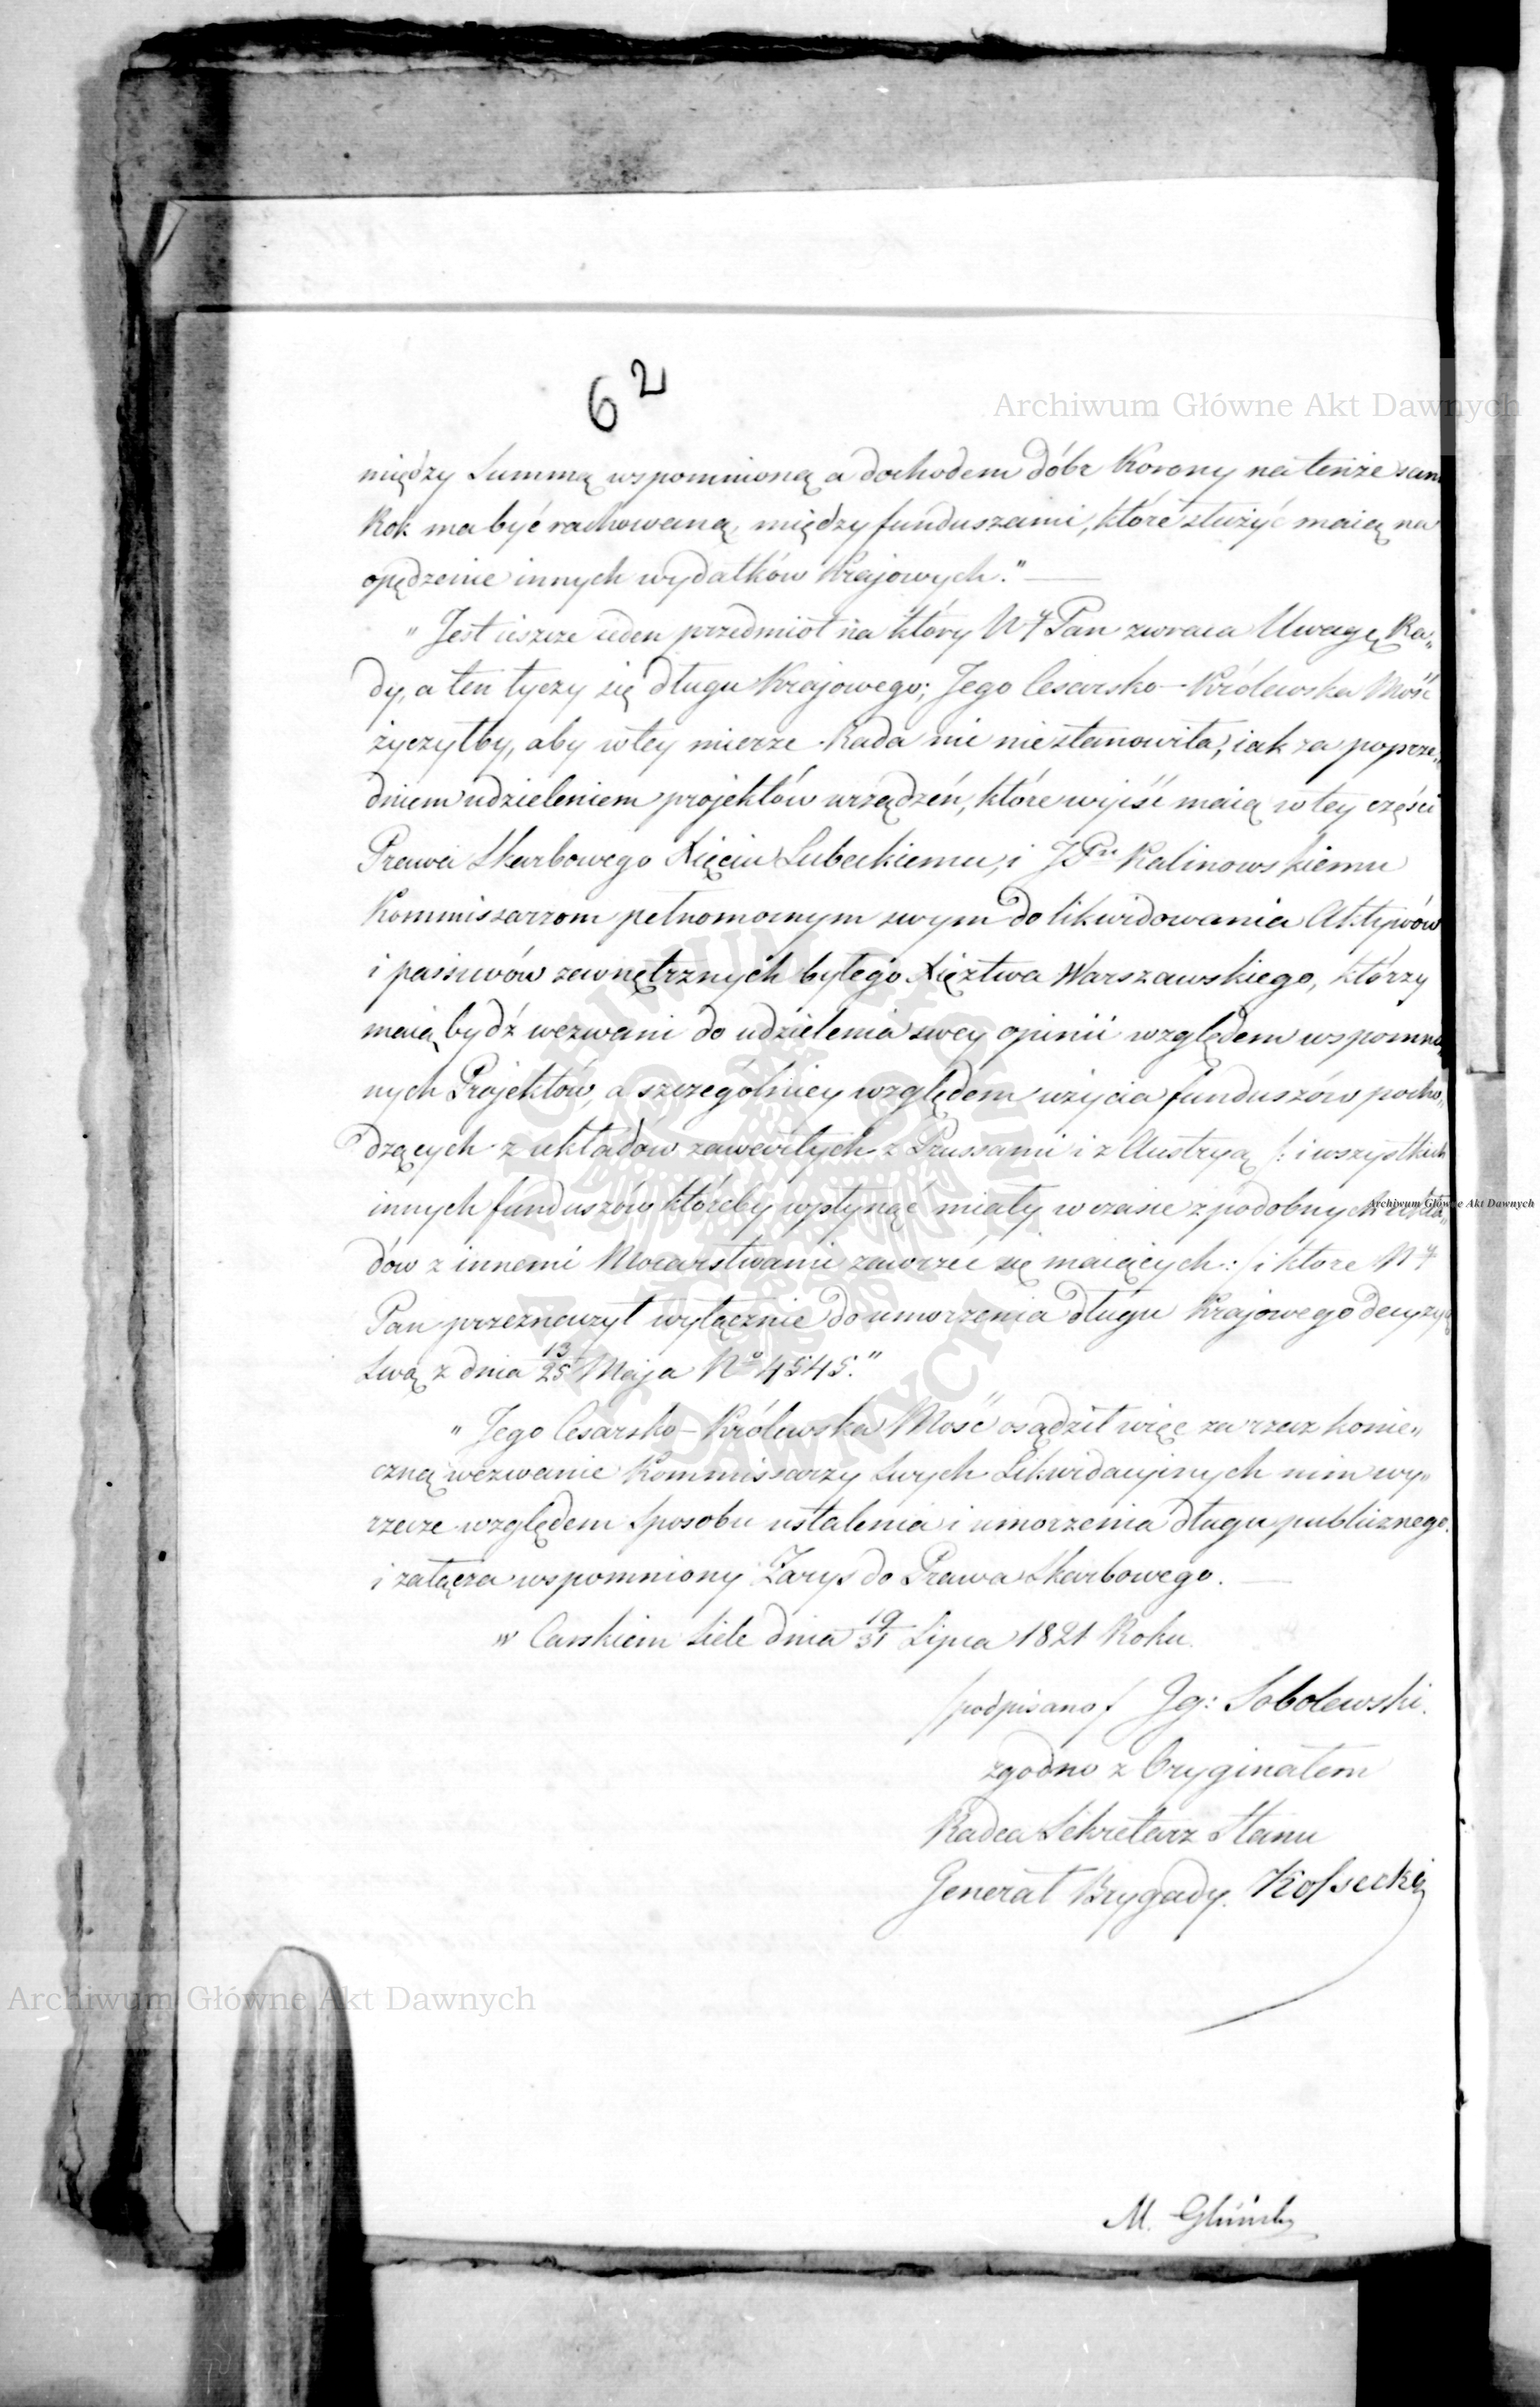 62
Archiwum Główne Akt Dawnych
między Summą wspomnioną a dochodem dóbr Korony na tenże sam
Rok ma być rachowaną, między funduszami, które służyć maią na
opędzenie innych wydatków Krajowych." —
„Jest ieszcze ieden przedmiot na który Ny Pan zwraca Uwagę Ra„
dy, a ten tyczy się długu Krajowego; Jego Cesarsko-Królewska Mość
życzyłby, aby w tey mierze Rada nic nie stanowiła, iak za poprze„
dniem udzieleniem projektów urządzeń, które wyjść maią w tey części
Prawa Skarbowego Xięciu Lubeckiemu, i JPu Kalinowskiemu
Kommissarzom pełnomocnym swym do likwidowania Aktywów
i passiwów zewnętrznych byłego Xięztwa Warszawskiego, którzy
maią bydź wezwani do udzielenia swey opinii względem wspomnio„
nych Projektów, a szczególniey względem użycia funduszów pocho„
dzących z układów zawartych z Prussami i z Austryą /: i wszystkich
innych funduszów któreby wpłynąć miały w czasie z podobnych ukła„
Archiwum Główne Akt Dawnych
dów z innemi Mocarstwami zawrzeć się maiących :/ i które Ny
Pan przeznaczył wyłącznie do umorzenia długu Krajowego decyzyą
Swą z dnia 13/25 Maja No 4545."
„Jego Cesarsko-Królewska Mość osądził więc za rzecz konie„
czną wezwanie Kommissarzy Swych Likwidacyinych nim wy„
rzecze względem Sposobu ustalenia i umorzenia długu publicznego.
i załącza wspomniony Zarys do Prawa Skarbowego. —
w Carskiem Siele dnia 19/31 Lipca 1821 Roku.
/podpisano/ Ig: Sobolewski.
zgodno z Oryginałem
Radca Sekretarz Stanu
Generał Brygady. Kossecki
Archiwum Główne Akt Dawnych
M.